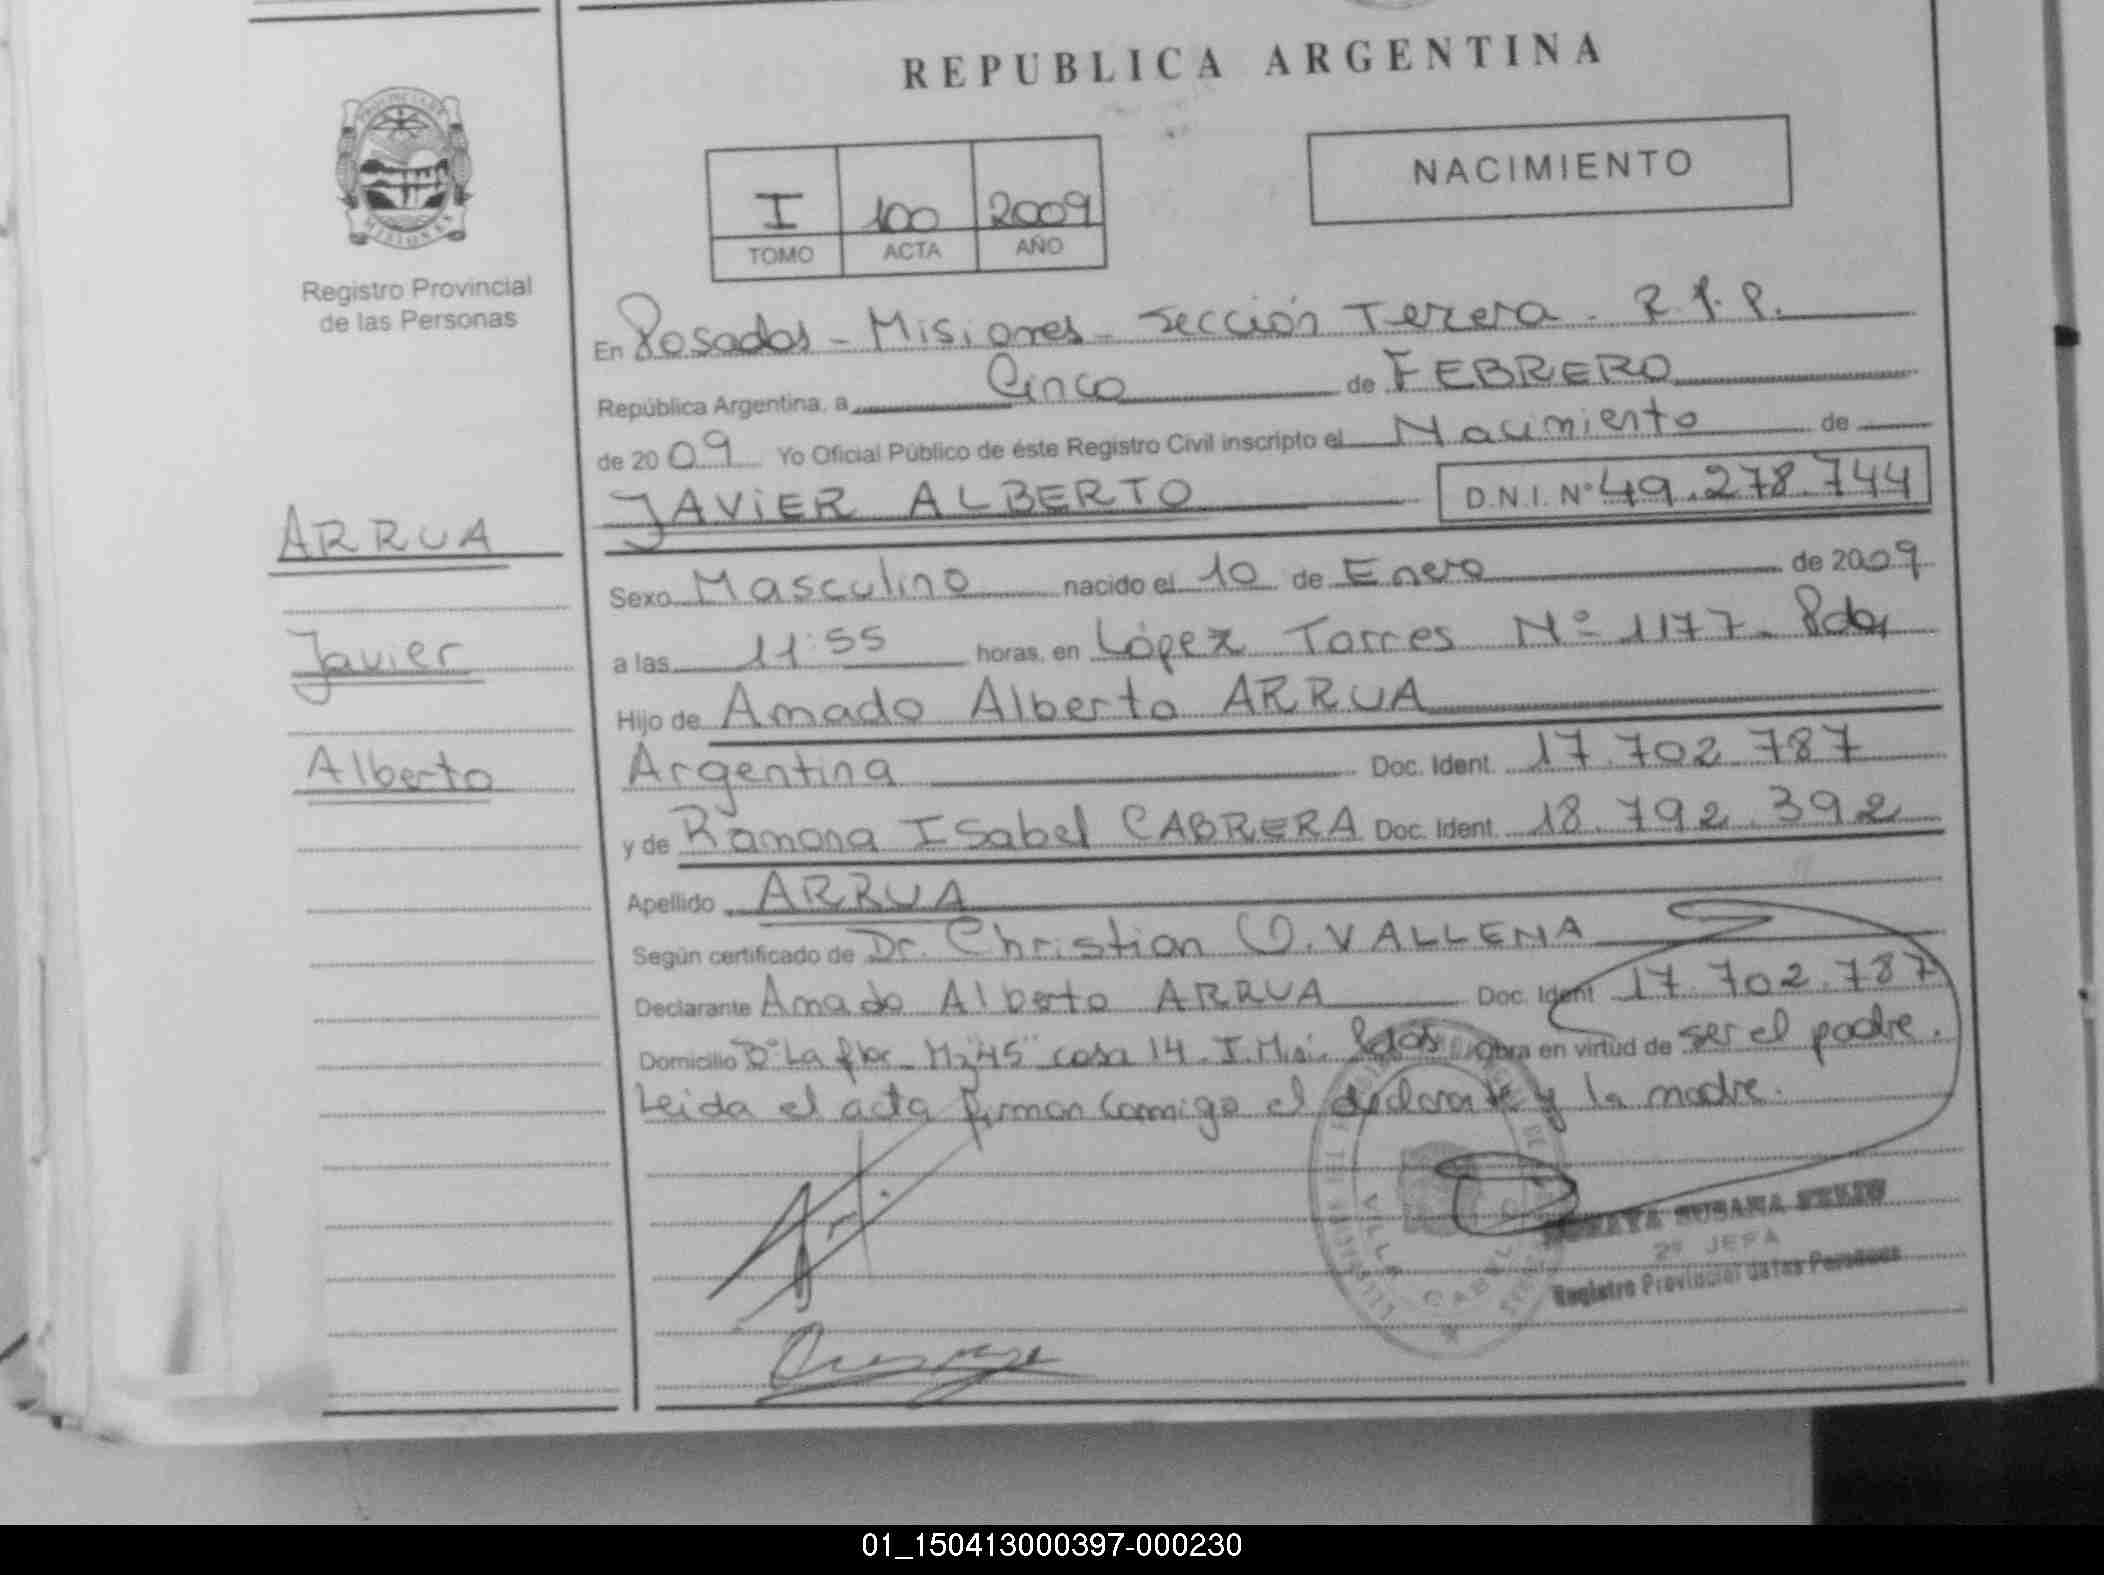 REPUBLICA ARGENTINA
NACIMIENTO
I 100 2009
TOMO ACTA AÑO
PROVINCIA DE
MISIONES
Registro Provincial
de las Personas
En Posadas - Misiones - Sección Tercera - R.P.P.
República Argentina, a Cinco de FEBRERO
de 2009 Yo Oficial Público de éste Registro Civil inscripto el Nacimiento de
JAVIER ALBERTO D.N.I. Nº 49.278.744
ARRUA
Javier
Alberto
Sexo Masculino nacido el 10 de Enero de 2009
a las 11:55 horas, en López Torres Nº 1177 - Pdas
Hijo de Amado Alberto ARRUA
Argentina Doc. Ident. 17.702.787
y de Ramona Isabel CABRERA Doc. Ident. 18.792.392
Apellido ARRUA
Según certificado de Dr. Christian O. VALLENA
Declarante Amado Alberto ARRUA Doc. Ident 17.702.787
Domicilio Bº La flor - Mz "45" casa 14 - I. Mis. Pdas Obra en virtud de ser el padre.
Leida el acta firman conmigo el declarante y la madre.
VILLA CABELLO
SUSANA
2º JEFA
Registro Provincial de las Personas
01_150413000397-000230